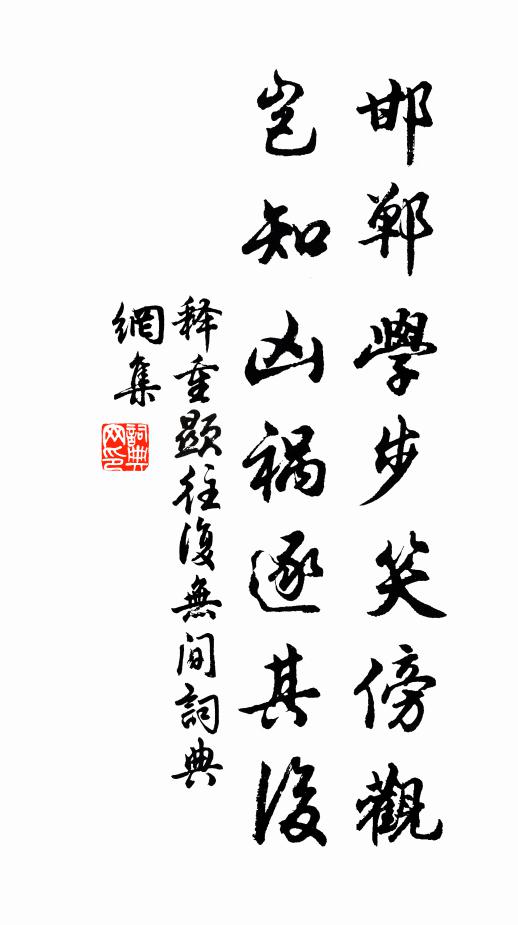 邯鄲學步笑傍觀
豈知凶禍逐其後
释重顯往復無间詞典
網集
詞典網印